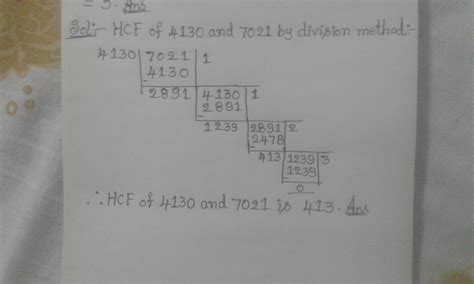 = 3. Ans
Sol:- HCF of 4130 and 7021 by division method:-
4130 7021 1
-4130
2891 4130 1
-2891
1239 2891 2
-2478
413 1239 3
-1239
0
∴ HCF of 4130 and 7021 is 413. Ans